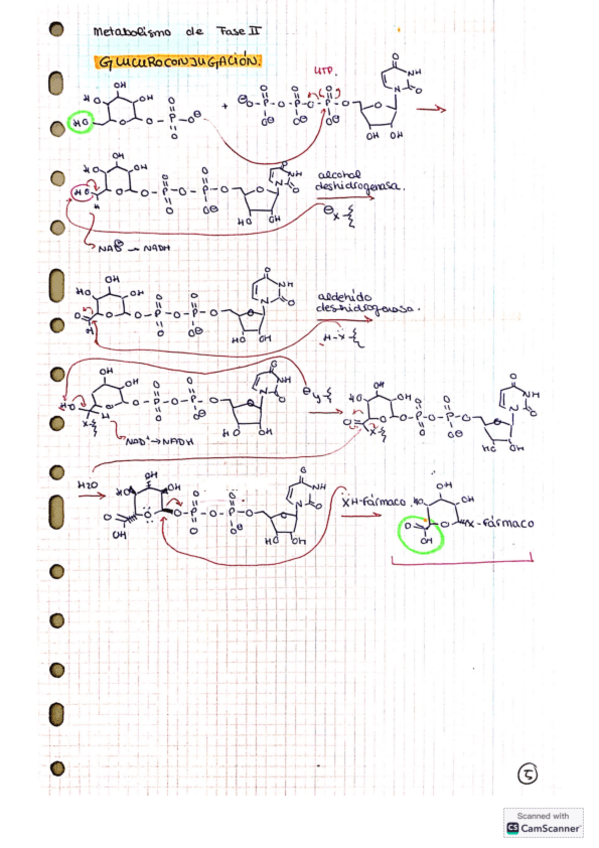 Metabolismo de Fase II
GLUCUROCONJUGACIÓN.
UTP.
alcohol
deshidrogenasa.
NAD⊕ → NADH
aldehido
deshidrogenasa.
H-X-
NAD⁺ → NADH
H2O
XH-fármaco
X-fármaco
5
Scanned with
CS CamScanner